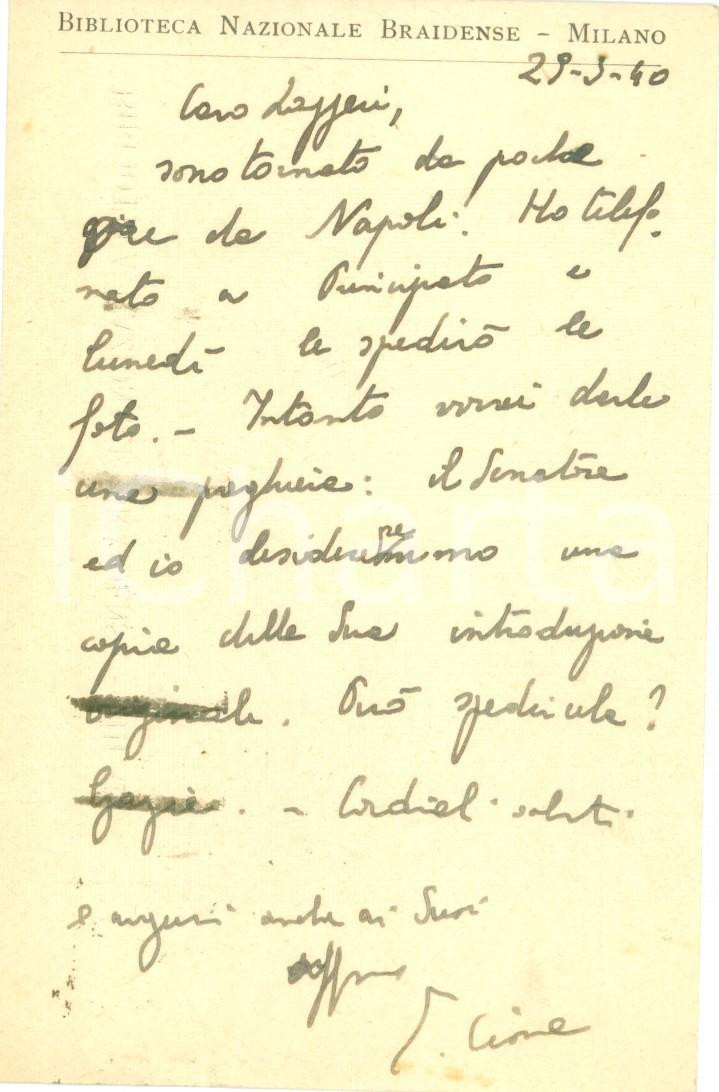 BIBLIOTECA NAZIONALE BRAIDENSE – MILANO
29-3-40
Caro Lazzeri,
sono tornato da poche
ore da Napoli. Ho telefo-
nato a Principato e
lunedì le spedirò le
foto. – Intanto vorrei darle
una preghiera: il Senatore
ed io desidereremmo una
copia della Sua introduzione
originale. Può spedircela?
Grazie. – Cordiali saluti
e auguri anche ai Suoi
aff.mo
E. Cione
iCharta